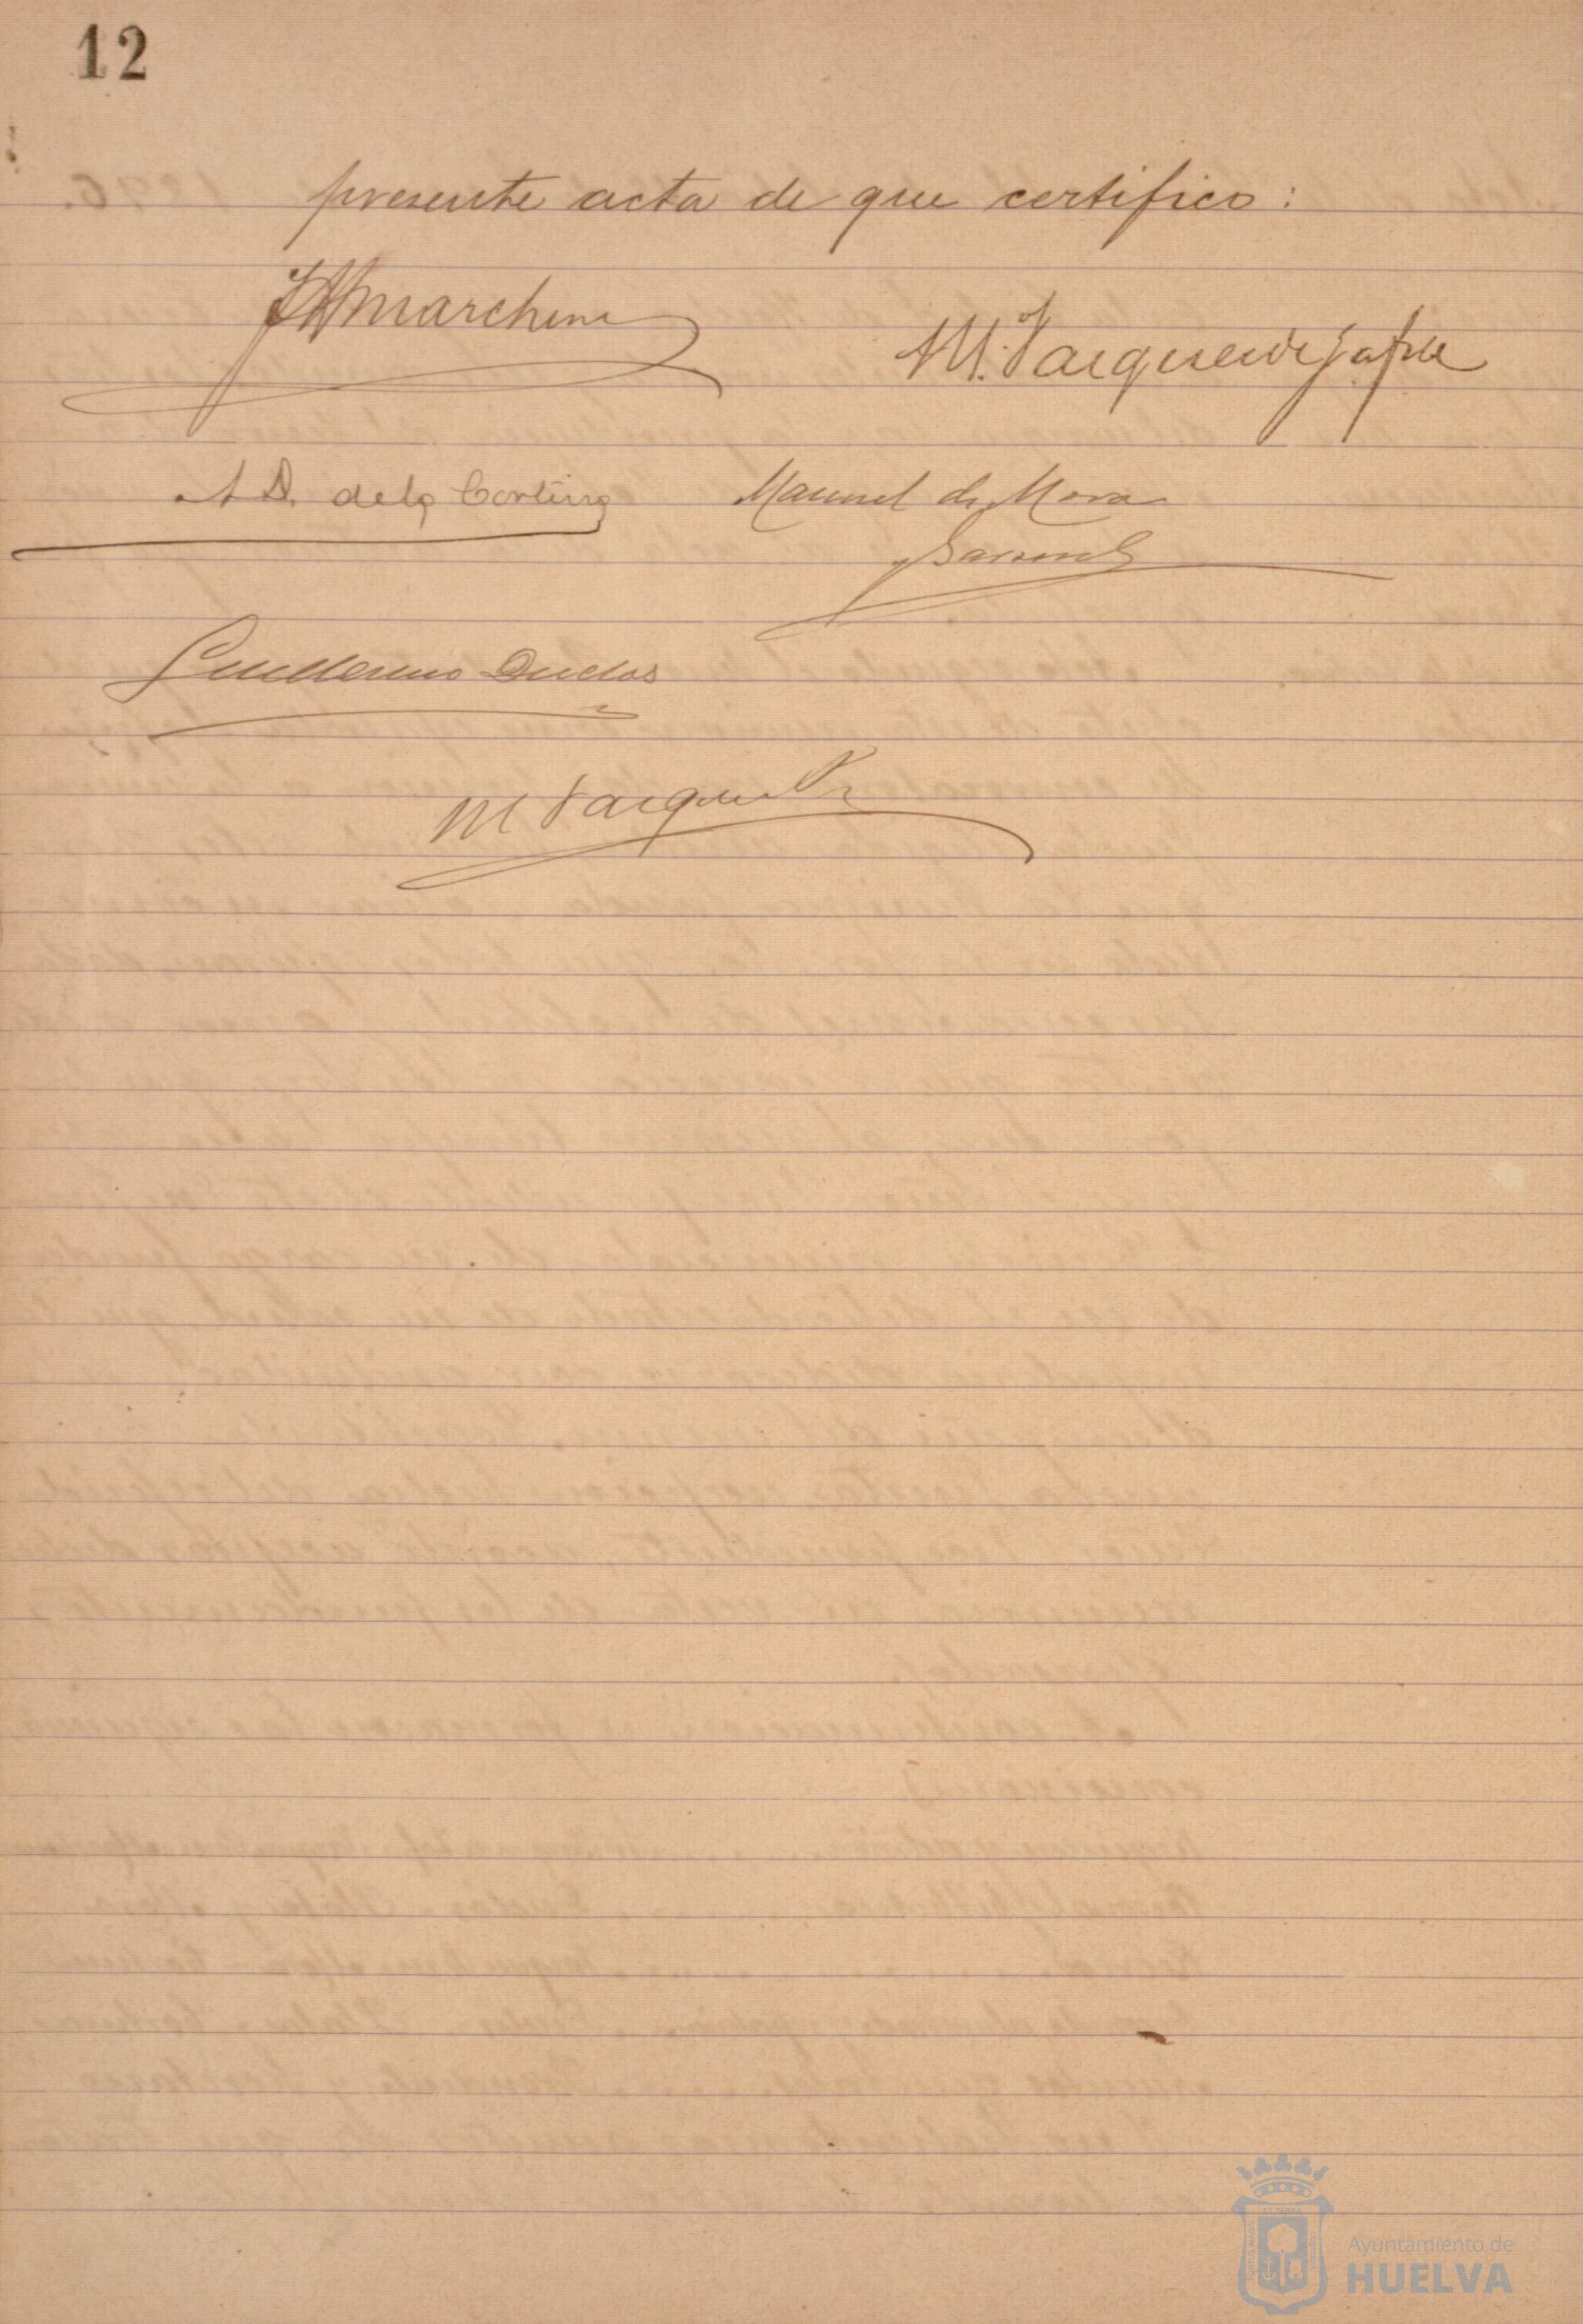 12
presente acta de que certifico:
J Marchena
M. Vazquez de Zafra
A D. de la Cortina
Manuel de Mora
y
Guillermo Duclos
M Vazquez
Ayuntamiento de
HUELVA